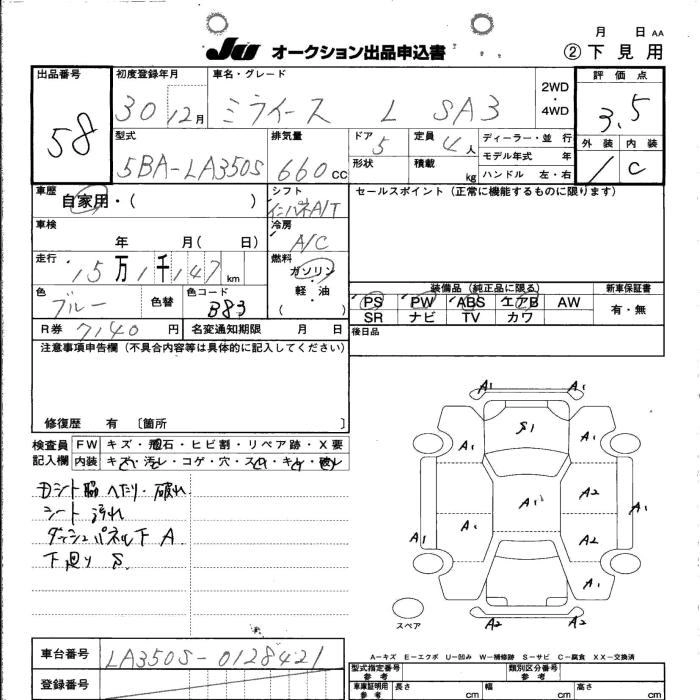 月 日 AA
JU オークション出品申込書 ②下見用
出品番号 初度登録年月 車名・グレード 2WD・4WD 評価点
58 30 12月 ミライース L SA3 3.5
型式 排気量 ドア 定員 ディーラー・並行 外装 内装
5BA-LA350S 660cc 5 4人 モデル年式 年
形状 積載 kg ハンドル 左・右 C
車歴 自家用・( ) シフト インパネA/T セールスポイント (正常に機能するものに限ります)
車検 年 月( 日) 冷房 A/C
走行 15万1千147km 燃料 ガソリン・軽・油 ( )
色 ブルー 色替 色コード B83
装備品 (純正品に限る) 新車保証書
PS PW ABS エアB AW 有・無
SR ナビ TV カワ
R券 7140円 名変通知期限 月 日 後日品
注意事項申告欄 (不具合内容等は具体的に記入してください)
修復歴 有 〔箇所 〕
検査員記入欄 FW キズ・飛石・ヒビ割・リペア跡・X要
内装 キズ・汚レ・コゲ・穴・スレ・キレ・破レ
Dシート脇へたり・破れ
シート汚れ
ダッシュパネル下 A
下廻り S
A1 A1
S1
A1 A1
A1 A2
A1 A1
A1 A2
A1
A2 A2
スペア
A-キズ E-エクボ U-凹み W-補修跡 S-サビ C-腐食 XX-交換済
車台番号 LA350S-0128421
型式指定番号 参考 類別区分番号 参考
登録番号 車庫証明用 参考 長さ cm 幅 cm 高さ cm